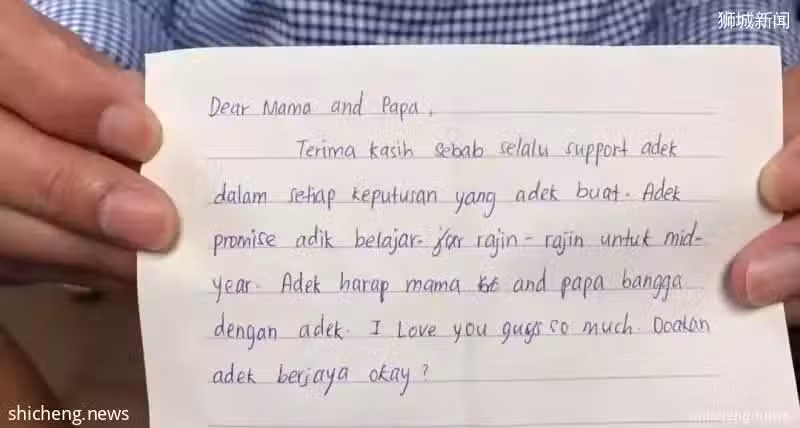 狮城新闻
Dear Mama and Papa,
Terima kasih sebab selalu support adek
dalam setiap keputusan yang adek buat. Adek
promise adik belajar rajin-rajin untuk mid-
year. Adek harap mama and papa bangga
dengan adek. I Love you guys so much. Doakan
adek berjaya okay?
shicheng.news
shicheng.news